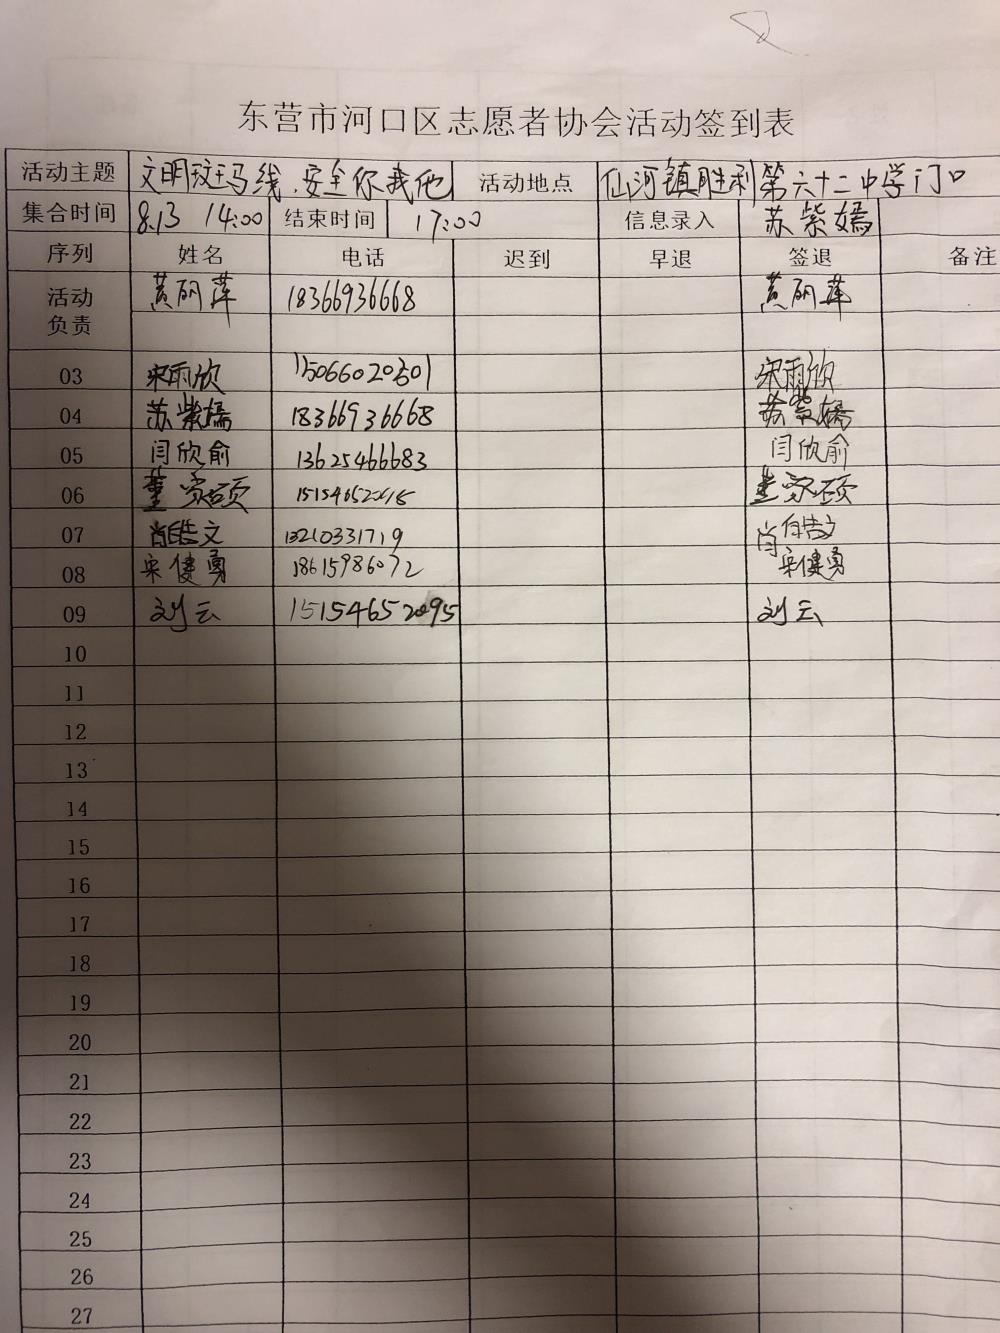 东营市河口区志愿者协会活动签到表
活动主题 文明斑马线,安全你我他 活动地点 仙河镇胜利第六十二中学门口
集合时间 8.13 14:00 结束时间 17:00 信息录入 苏紫嫣
序列 姓名 电话 迟到 早退 签退 备注
活动负责 黄丽萍 18366936668 黄丽萍
03 宋雨欣 15066020301 宋雨欣
04 苏紫嫣 18366936668 苏紫嫣
05 闫欣俞 13625466683 闫欣俞
06 董家硕 董家硕
07 肖皓文 13210331719 肖皓文
08 宋健勇 18615986072 宋健勇
09 刘云 15154652095 刘云
10
11
12
13
14
15
16
17
18
19
20
21
22
23
24
25
26
27